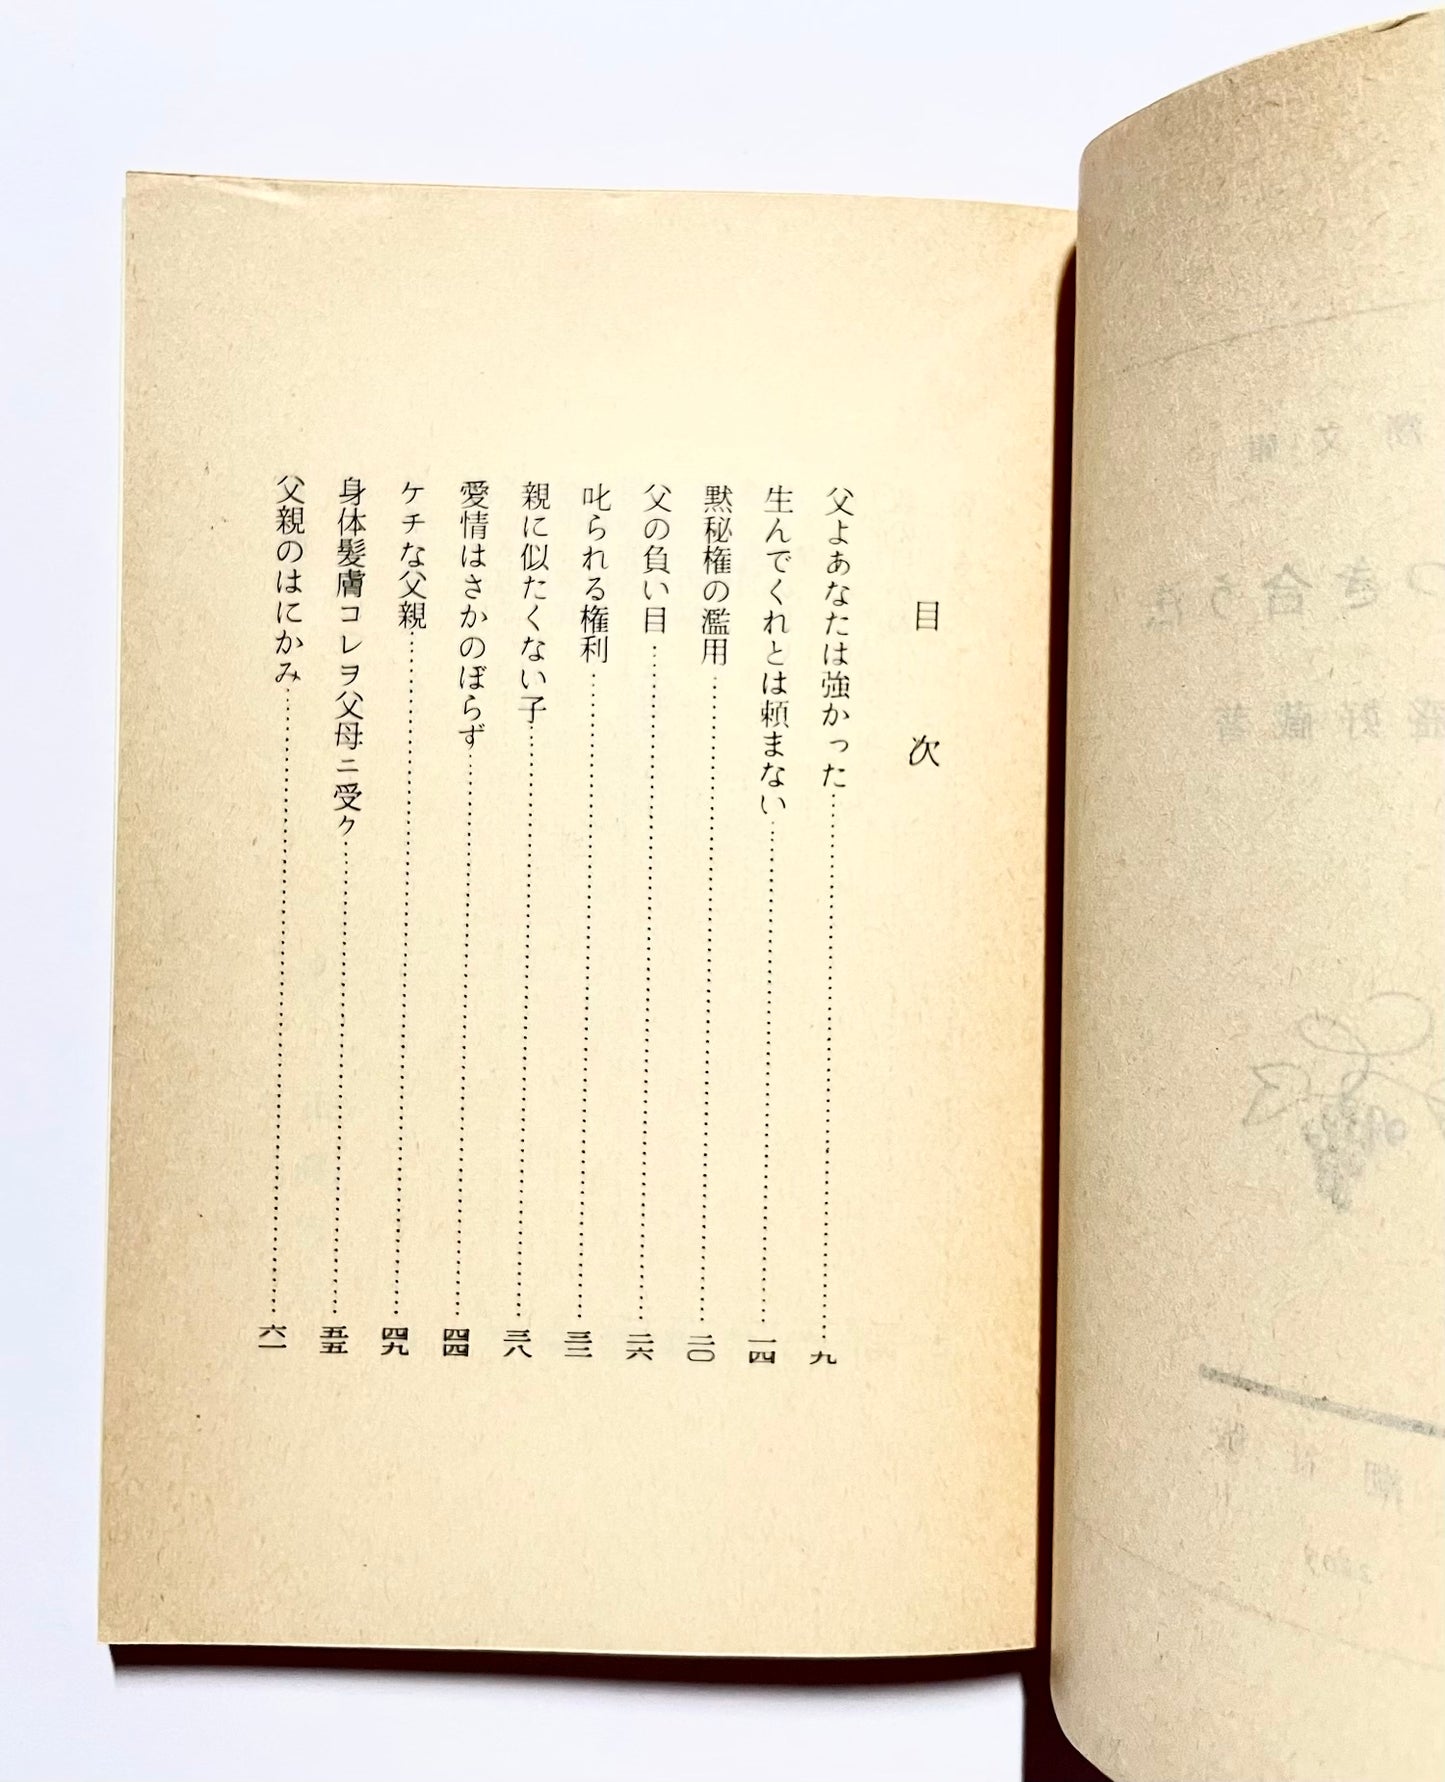 目次
父よあなたは強かった……九
生んでくれとは頼まない……一四
黙秘権の濫用……二〇
父の負い目……二六
叱られる権利……三二
親に似たくない子……三八
愛情はさかのぼらず……四四
ケチな父親……四九
身体髪膚コレヲ父母ニ受ク……五五
父親のはにかみ……六一